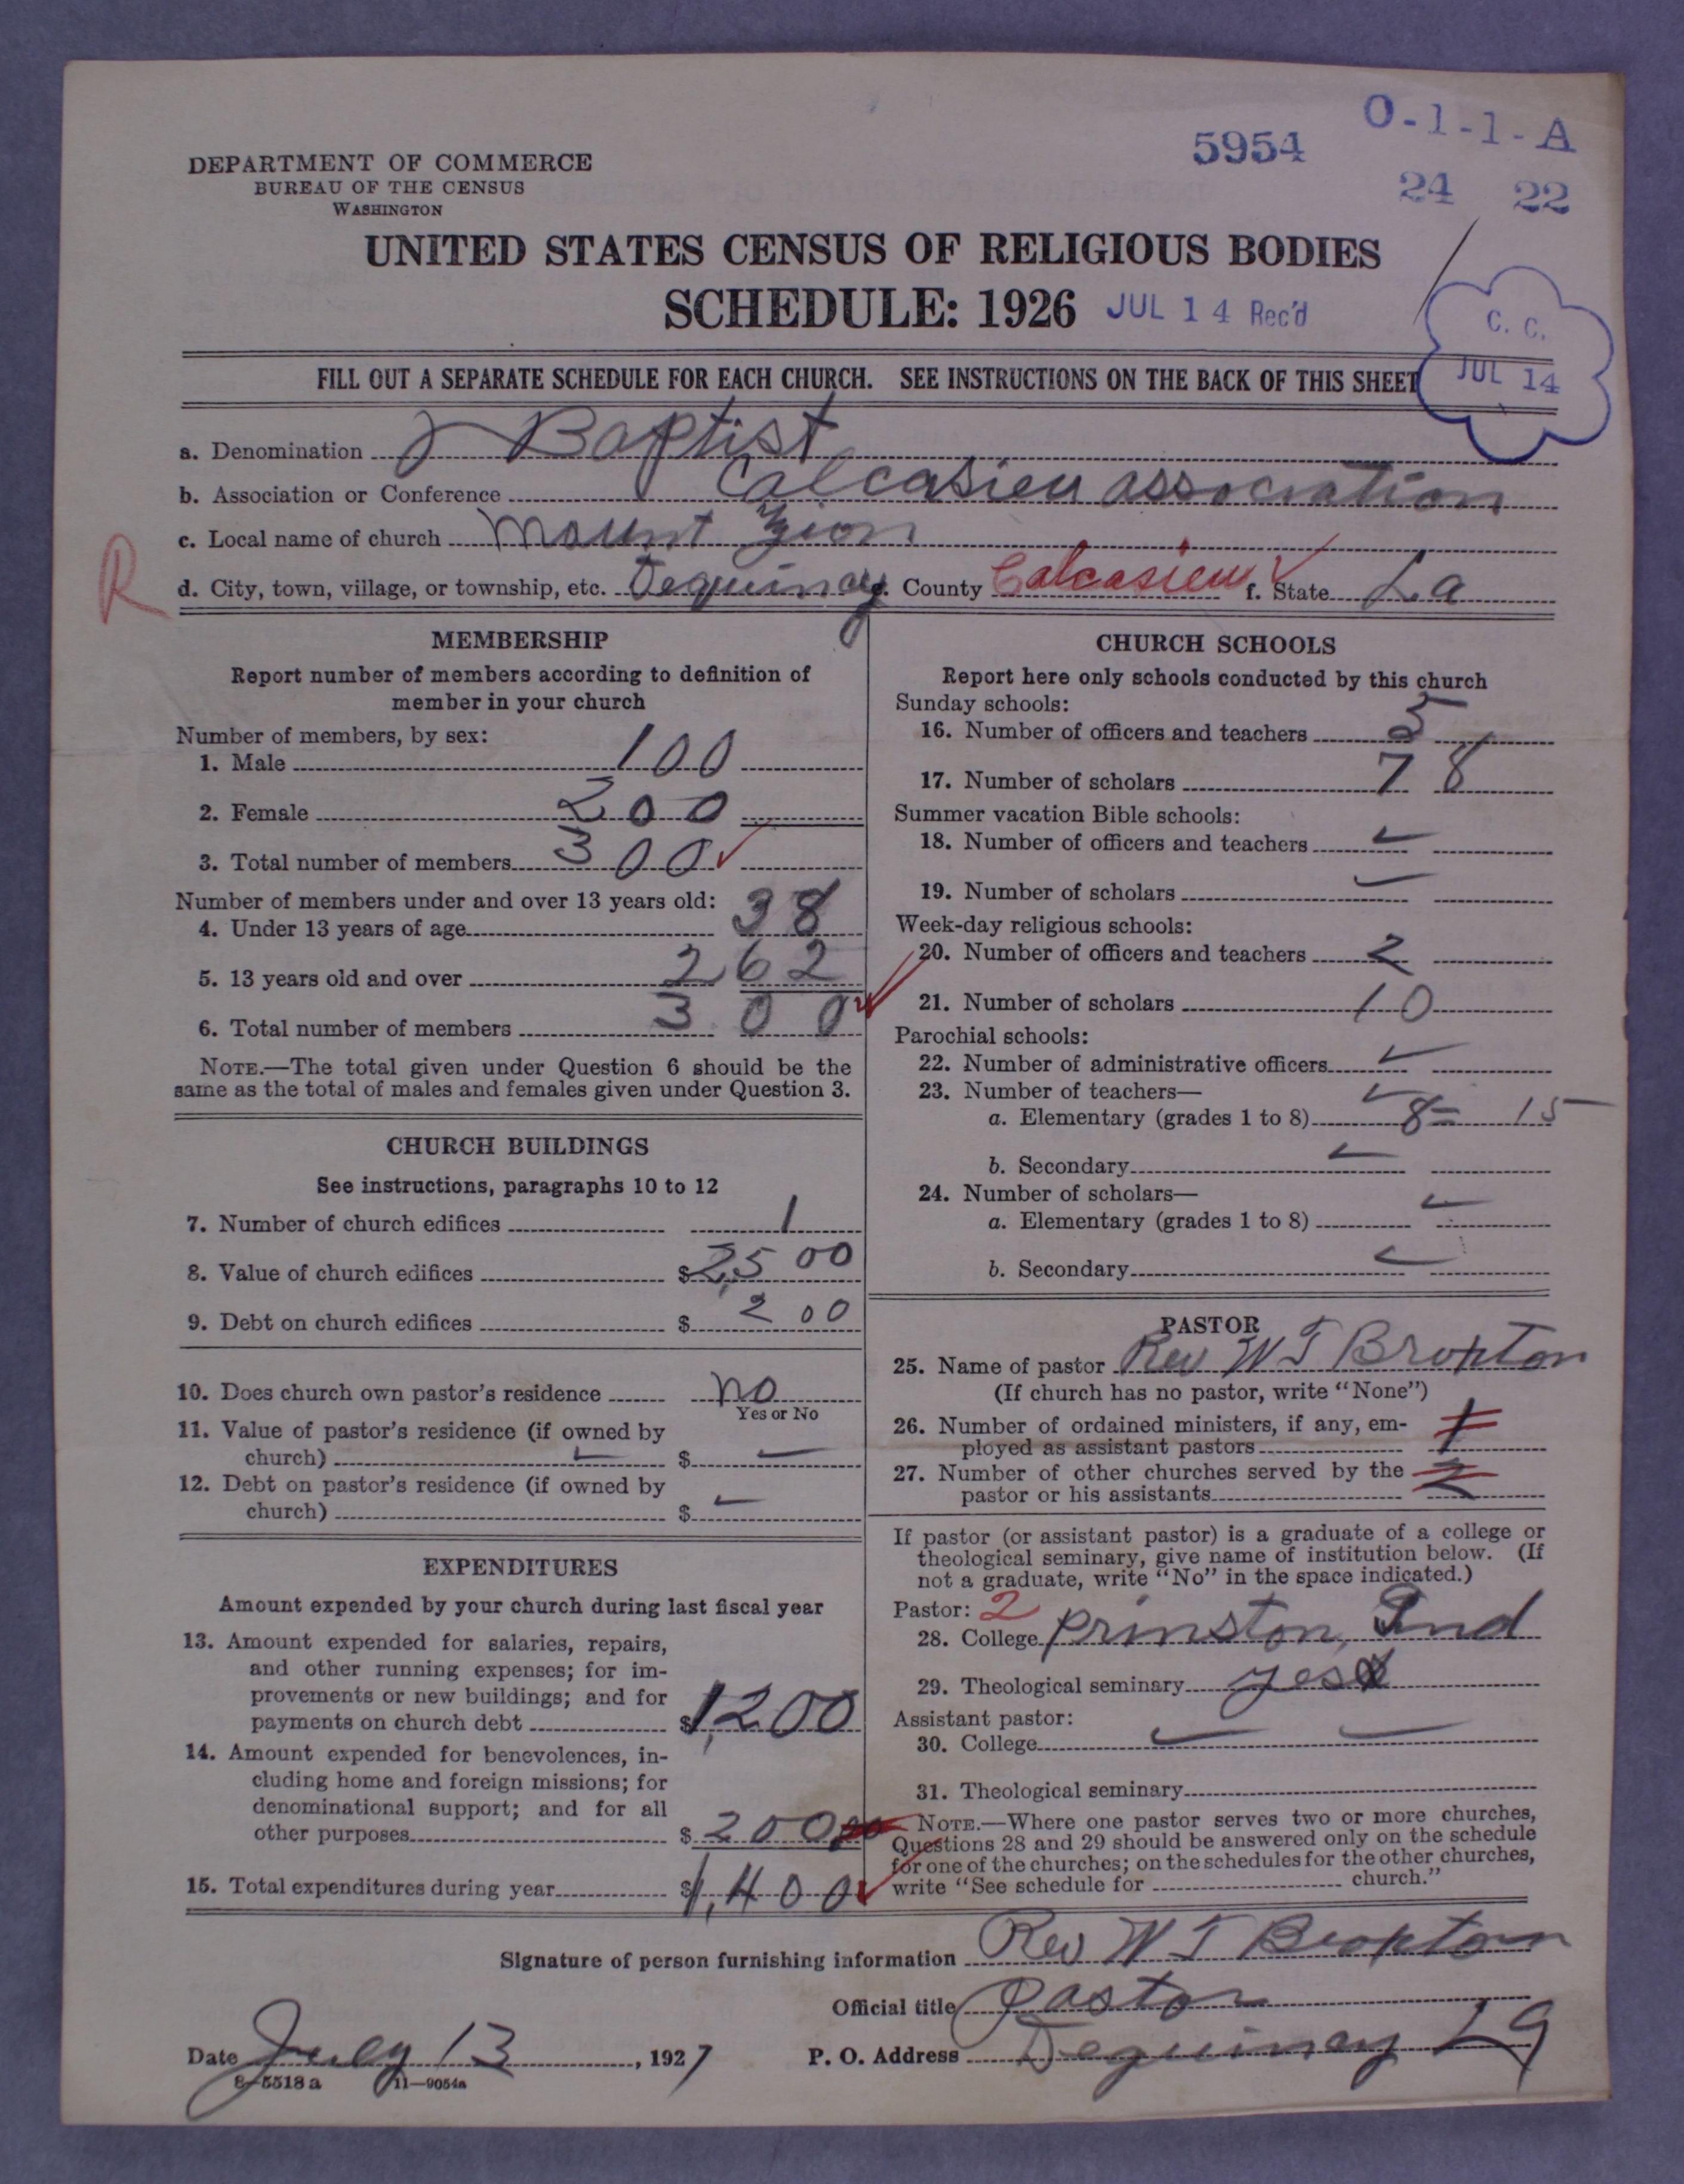 O-1-1-A
5954
24 22
DEPARTMENT OF COMMERCE
BUREAU OF THE CENSUS
WASHINGTON
UNITED STATES CENSUS OF RELIGIOUS BODIES
SCHEDULE: 1926 JUL 14 Rec'd
C. C.
JUL 14
FILL OUT A SEPARATE SCHEDULE FOR EACH CHURCH. SEE INSTRUCTIONS ON THE BACK OF THIS SHEET
a. Denomination Baptist
b. Association or Conference Calcasieu association
c. Local name of church Mount Zion
R
d. City, town, village, or township, etc. Dequincy e. County Calcasieu f. State La
MEMBERSHIP
Report number of members according to definition of
member in your church
Number of members, by sex:
1. Male 100
2. Female 200
3. Total number of members 300
Number of members under and over 13 years old:
4. Under 13 years of age 38
5. 13 years old and over 262
6. Total number of members 300
NOTE.—The total given under Question 6 should be the
same as the total of males and females given under Question 3.
CHURCH BUILDINGS
See instructions, paragraphs 10 to 12
7. Number of church edifices 1
8. Value of church edifices $2,500
9. Debt on church edifices $ 200
10. Does church own pastor's residence no
Yes or No
11. Value of pastor's residence (if owned by
church) $
12. Debt on pastor's residence (if owned by
church) $
EXPENDITURES
Amount expended by your church during last fiscal year
13. Amount expended for salaries, repairs,
and other running expenses; for im-
provements or new buildings; and for
payments on church debt $1,200
14. Amount expended for benevolences, in-
cluding home and foreign missions; for
denominational support; and for all
other purposes $ 200.00
15. Total expenditures during year $1,400
CHURCH SCHOOLS
Report here only schools conducted by this church
Sunday schools:
16. Number of officers and teachers 5
17. Number of scholars 78
Summer vacation Bible schools:
18. Number of officers and teachers
19. Number of scholars
Week-day religious schools:
20. Number of officers and teachers 2
21. Number of scholars 10
Parochial schools:
22. Number of administrative officers
23. Number of teachers—
a. Elementary (grades 1 to 8) 8= 15
b. Secondary
24. Number of scholars—
a. Elementary (grades 1 to 8)
b. Secondary
PASTOR
25. Name of pastor Rev W T Broxton
(If church has no pastor, write "None")
26. Number of ordained ministers, if any, em-
ployed as assistant pastors 1
27. Number of other churches served by the
pastor or his assistants 2
If pastor (or assistant pastor) is a graduate of a college or
theological seminary, give name of institution below. (If
not a graduate, write "No" in the space indicated.)
Pastor: 2
28. College Prinston, Ind
29. Theological seminary yes
Assistant pastor:
30. College
31. Theological seminary
NOTE.—Where one pastor serves two or more churches,
Questions 28 and 29 should be answered only on the schedule
for one of the churches; on the schedules for the other churches,
write "See schedule for church."
Signature of person furnishing information Rev W T Broxton
Official title Pastor
Date July 13, 1927 P. O. Address Dequincy La
8-5518 a 11—9054a